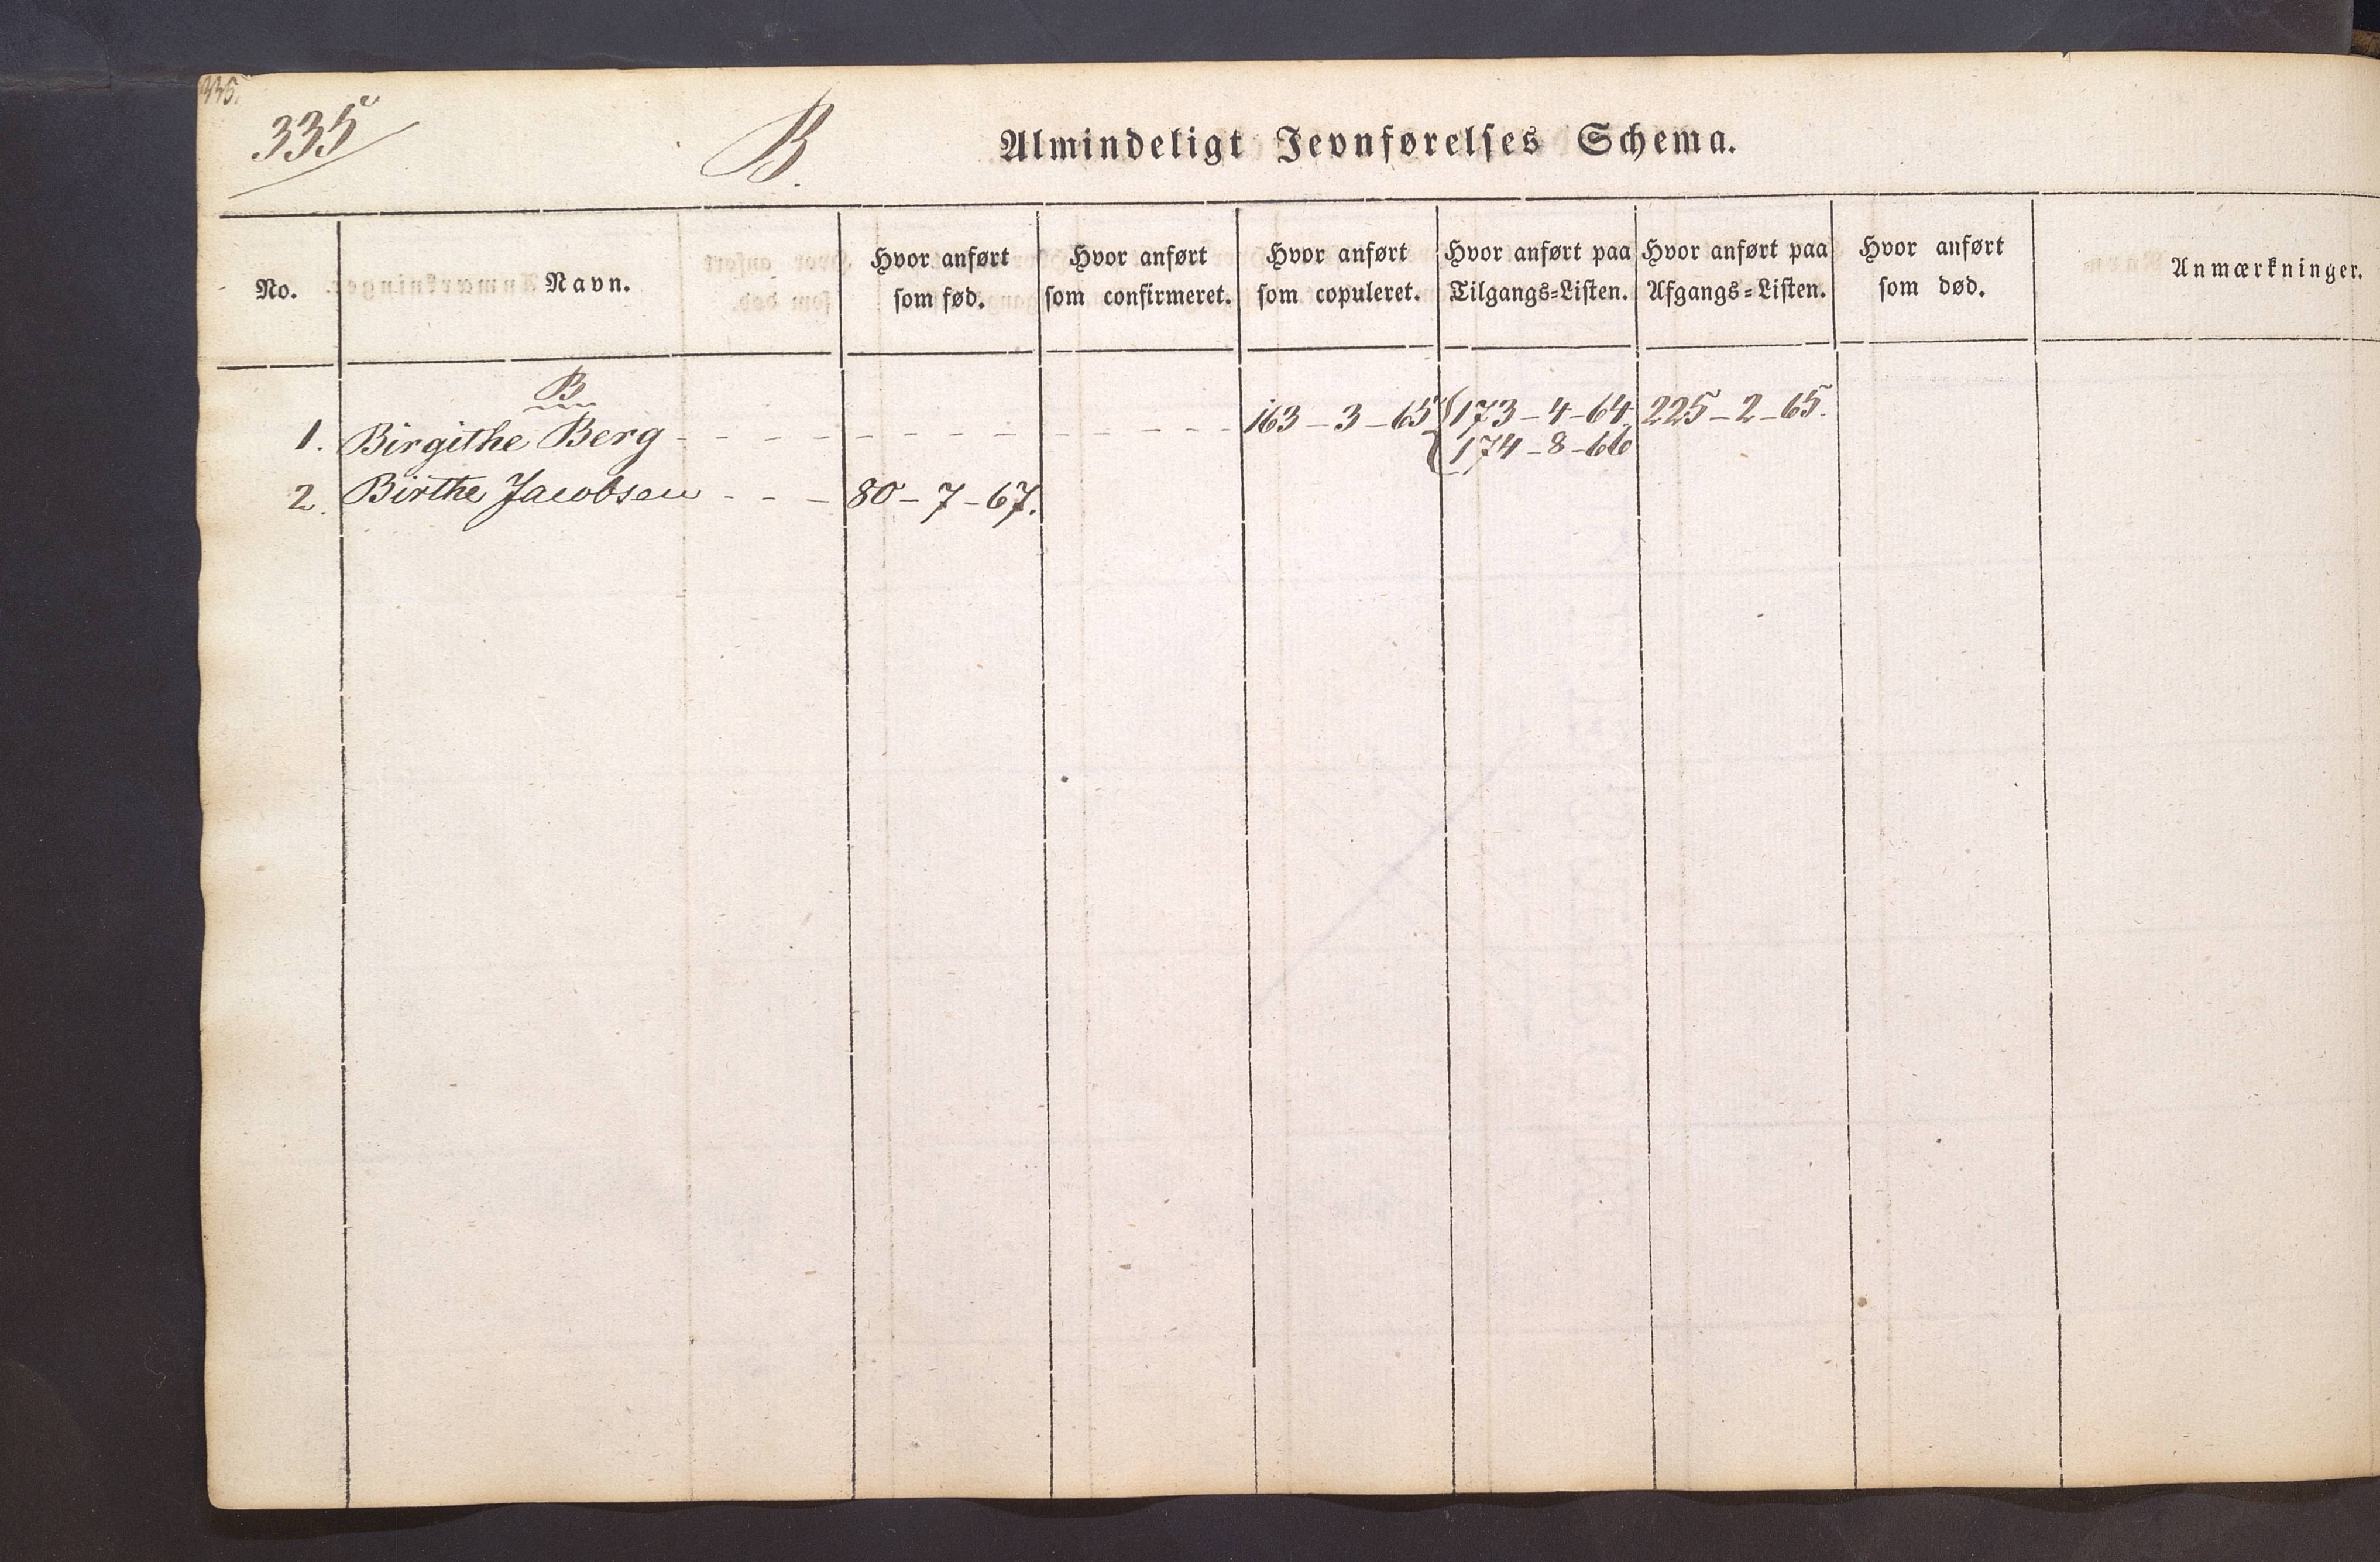 335.
335
B.
Almindeligt Jevnførelses Schema.
No.
Navn.
Hvor anført
som fød.
Hvor anført
som confirmeret.
Hvor anført
som copuleret.
Hvor anført paa
Tilgangs=Listen.
Hvor anført paa
Afgangs=Listen.
Hvor anført
som død.
Anmærkninger.
B
1. Birgithe Berg - - - - - - - - - - - - 163 - 3 - 65 { 173 - 4 - 64. 225 - 2 - 65.
174 - 8 - 66
2. Birthe Jacobsen - - - 80 - 7 - 67.